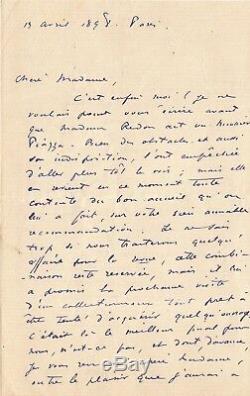 13 avril 1898. Paris.
Chère Madame,
C'est enfin moi ! je ne
voulais point vous écrire avant
que madame Redon ait vu
Piazza. Bien des obstacles, et aussi
son indisposition, l'ont empêchée
d'aller plus tôt le voir ; mais elle
en revient en ce moment toute
contente du bon accueil qu'on
lui a fait, sur votre si aimable
recommandation. Je ne sais
trop si nous traiterons quelqu'
affaire pour la revue, cette combi-
naison reste réservée, mais il lui
a promis la prochaine visite
d'un collectionneur tout prêt
être tenté d'acquérir quelqu'ouvrage.
C'était là le meilleur pour
nous, n'est-ce pas, et dont davance,
je vous remercie madame,
outre le plaisir que j'aurai à